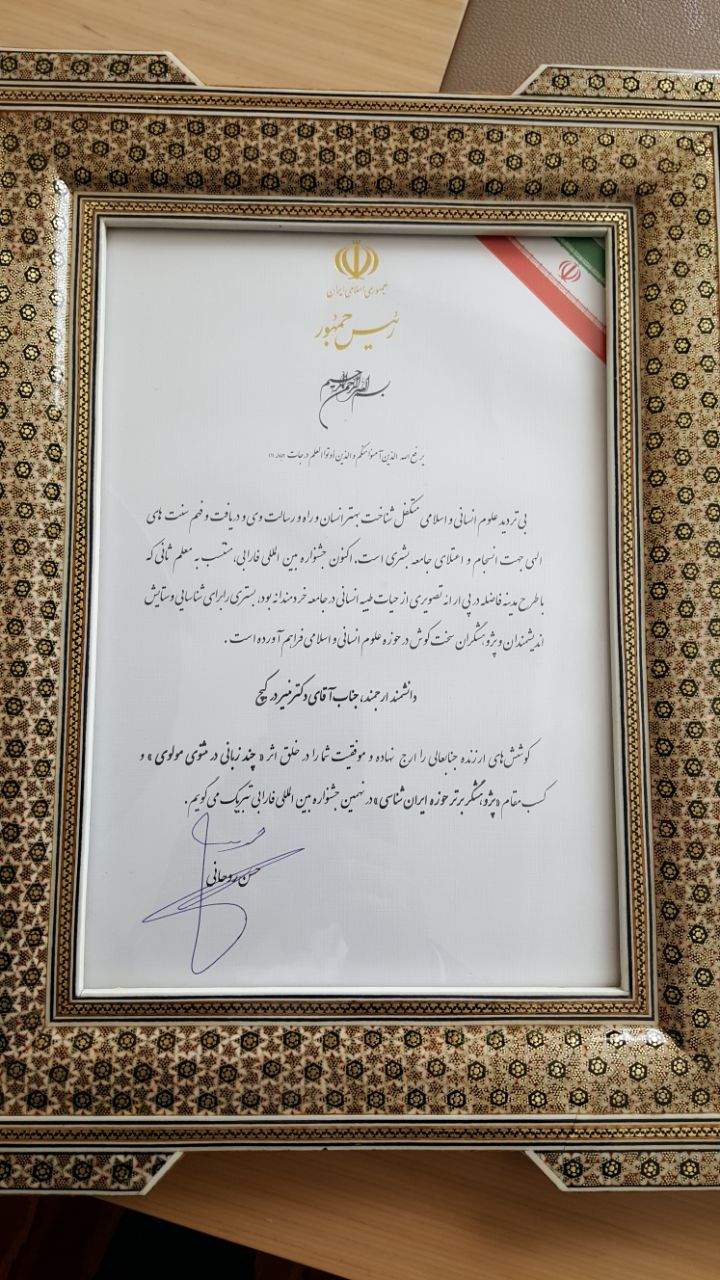 جمهوری اسلامی ایران
رئیس جمهور
بسم الله الرحمن الرحیم
یرفع الله الذین آمنوا منکم و الذین اوتوا العلم درجات
بی تردید علوم انسانی و اسلامی متکفل شناخت بهتر انسان و راه و رسالت وی و دریافت و فهم سنت های
الهی جهت انسجام و اعتلای جامعه بشری است. اکنون جشنواره بین المللی فارابی، منتسب به معلم ثانی که
با طرح مدینه فاضله در پی ارائه تصویری از حیات طیبه انسانی در جامعه خردمندانه بود، بستری را برای شناسایی و ستایش
اندیشمندان و پژوهشگران سخت کوش در حوزه علوم انسانی و اسلامی فراهم آورده است.
دانشمند ارجمند، جناب آقای دکتر منیر درکیچ
کوشش‌های ارزنده جنابعالی را ارج نهاده و موفقیت شما را در خلق اثر « چند زبانی در مثنوی مولوی » و
کسب مقام «پژوهشگر برتر حوزه ایران شناسی» در نهمین جشنواره بین المللی فارابی تبریک می گویم.
حسن روحانی